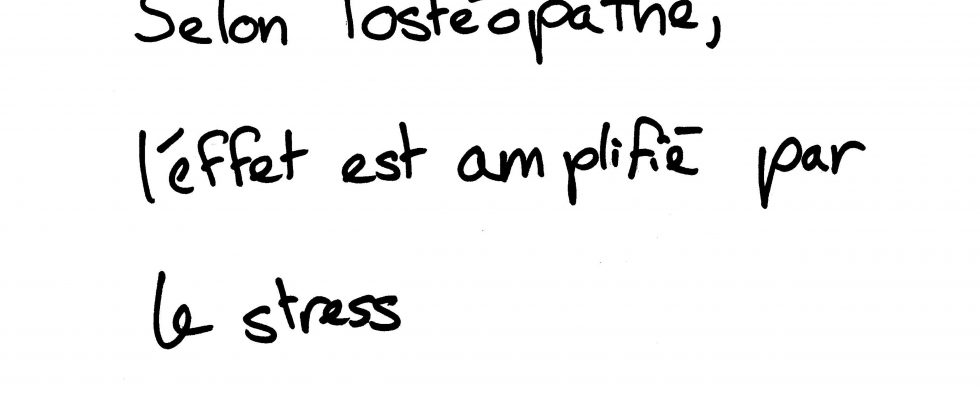 Selon l'ostéopathe,
l'éffet est amplifié par
le stress